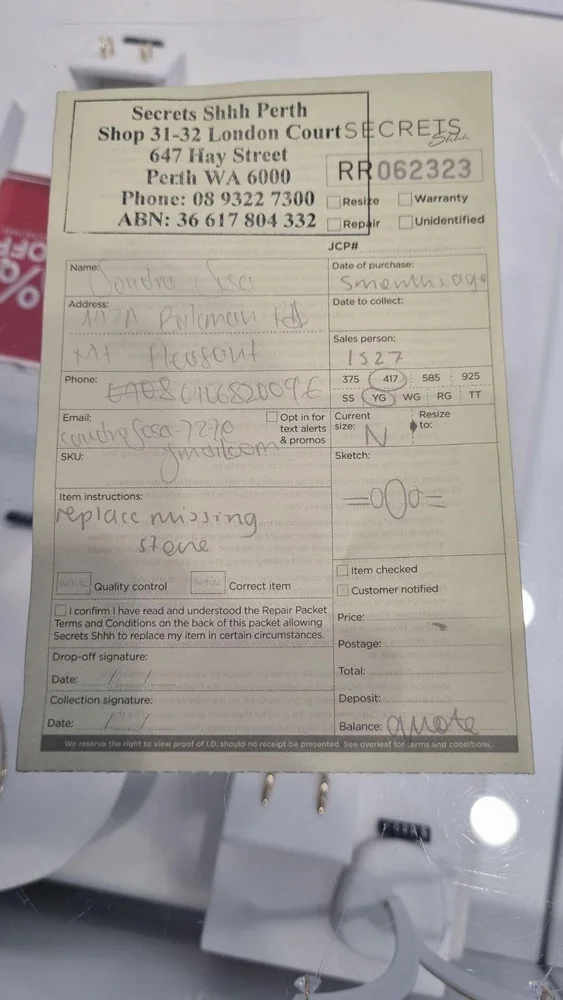 Secrets Shhh Perth
Shop 31-32 London Court
647 Hay Street
Perth WA 6000
Phone: 08 9322 7300
ABN: 36 617 804 332
SECRETS
Shhh
RR062323
Resize
Warranty
Repair
Unidentified
JCP#
Name:
Date of purchase:
5months ago
Address:
Rd
Mt Pleasant
Date to collect:
Sales person:
1527
Phone:
375 417 585 925
SS YG WG RG TT
Email:
gmail.com
Opt in for
text alerts
& promos
Current
size: N
Resize
to:
SKU:
Sketch:
Item instructions:
replace missing
stone
INITIAL Quality control
INITIAL Correct item
Item checked
Customer notified
I confirm I have read and understood the Repair Packet
Terms and Conditions on the back of this packet allowing
Secrets Shhh to replace my item in certain circumstances.
Price:
Postage:
Drop-off signature:
Date: / /
Total:
Collection signature:
Date: / /
Deposit:
Balance: quote
We reserve the right to view proof of I.D. should no receipt be presented. See overleaf for terms and conditions.
% OFF